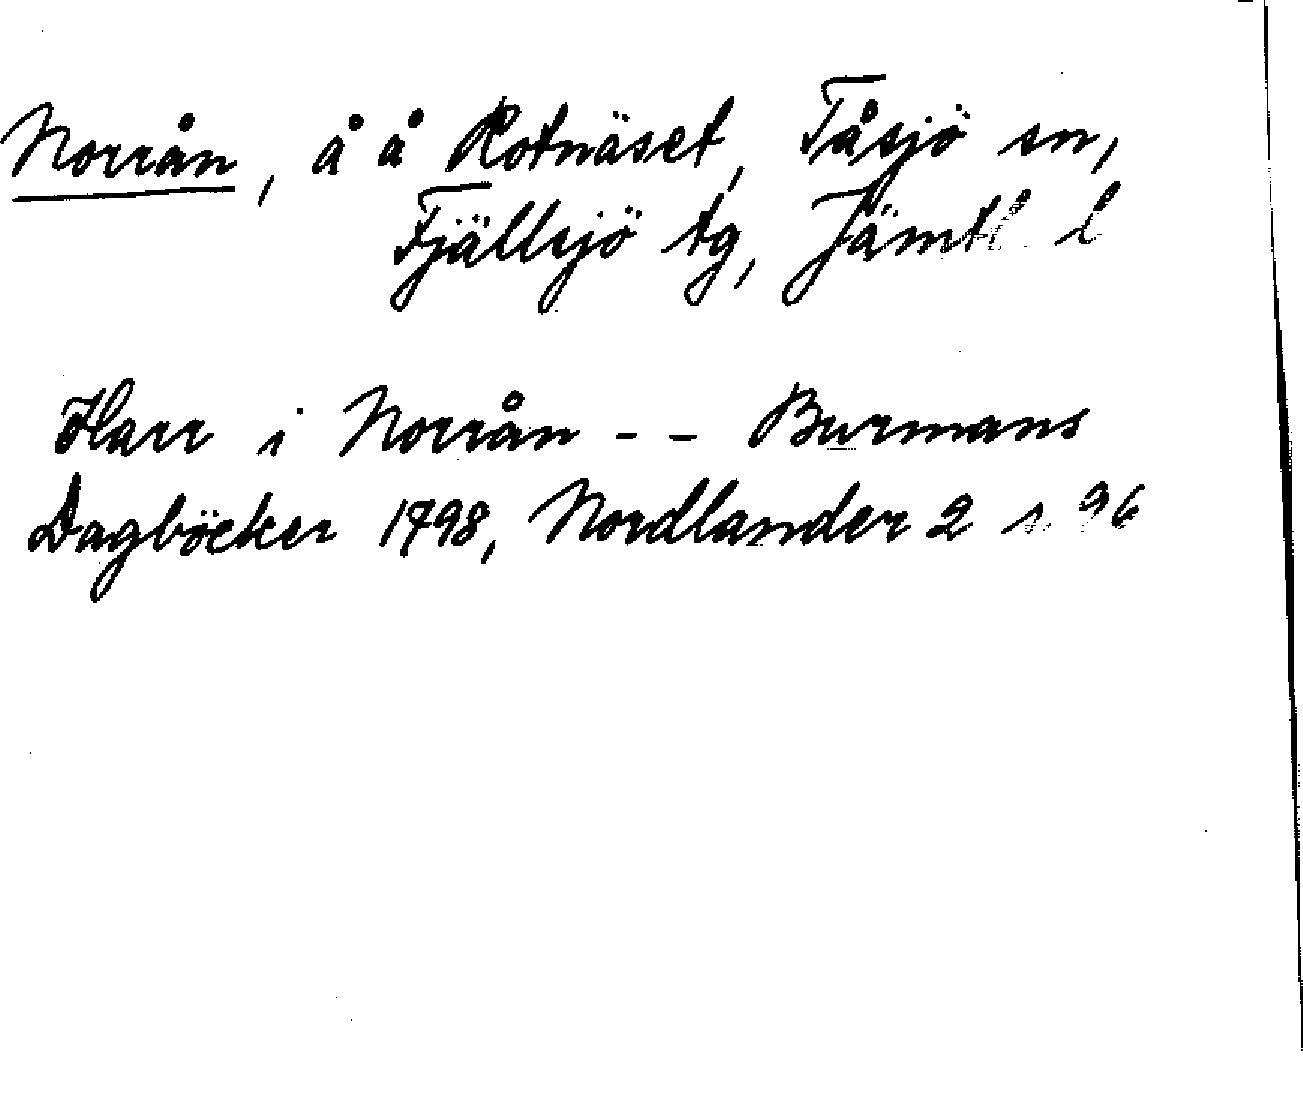 Norrån, å å Rotnäset, Tåsjö sn,
Fjällsjö tg, Jämtl. l
Harr i Norrån - - Burmans
Dagböcker 1798, Nordlander 2 s. 96